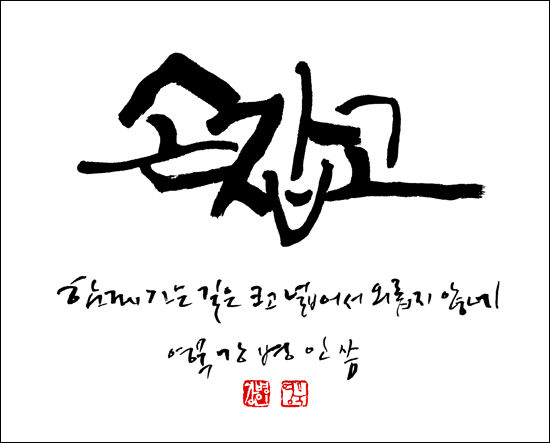 손잡고
함께 가는 길은 크고 넓어서 외롭지 않네
영묵 강병인 씀